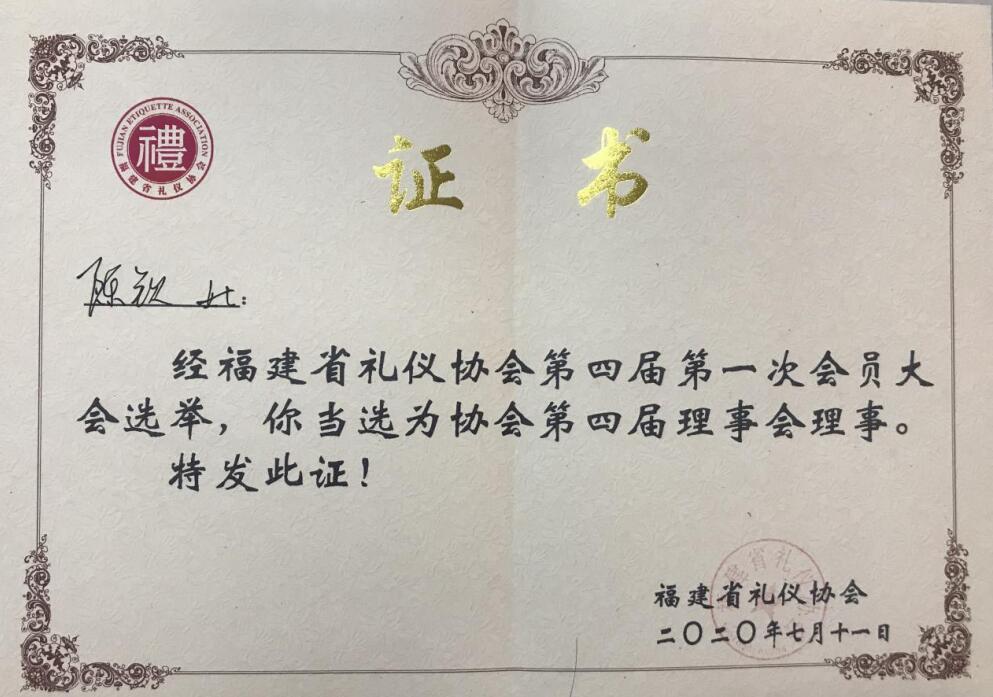 FUJIAN ETIQUETTE ASSOCIATION
禮
福建省礼仪协会
证 书
陈钦
经福建省礼仪协会第四届第一次会员大
会选举，你当选为协会第四届理事会理事。
特发此证！
福建省礼仪协会
二〇二〇年七月十一日